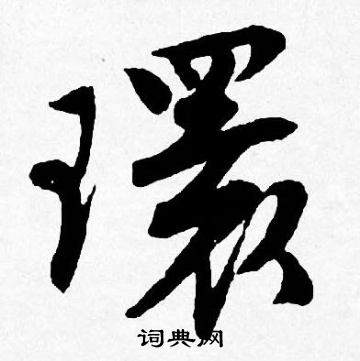 環
词典网